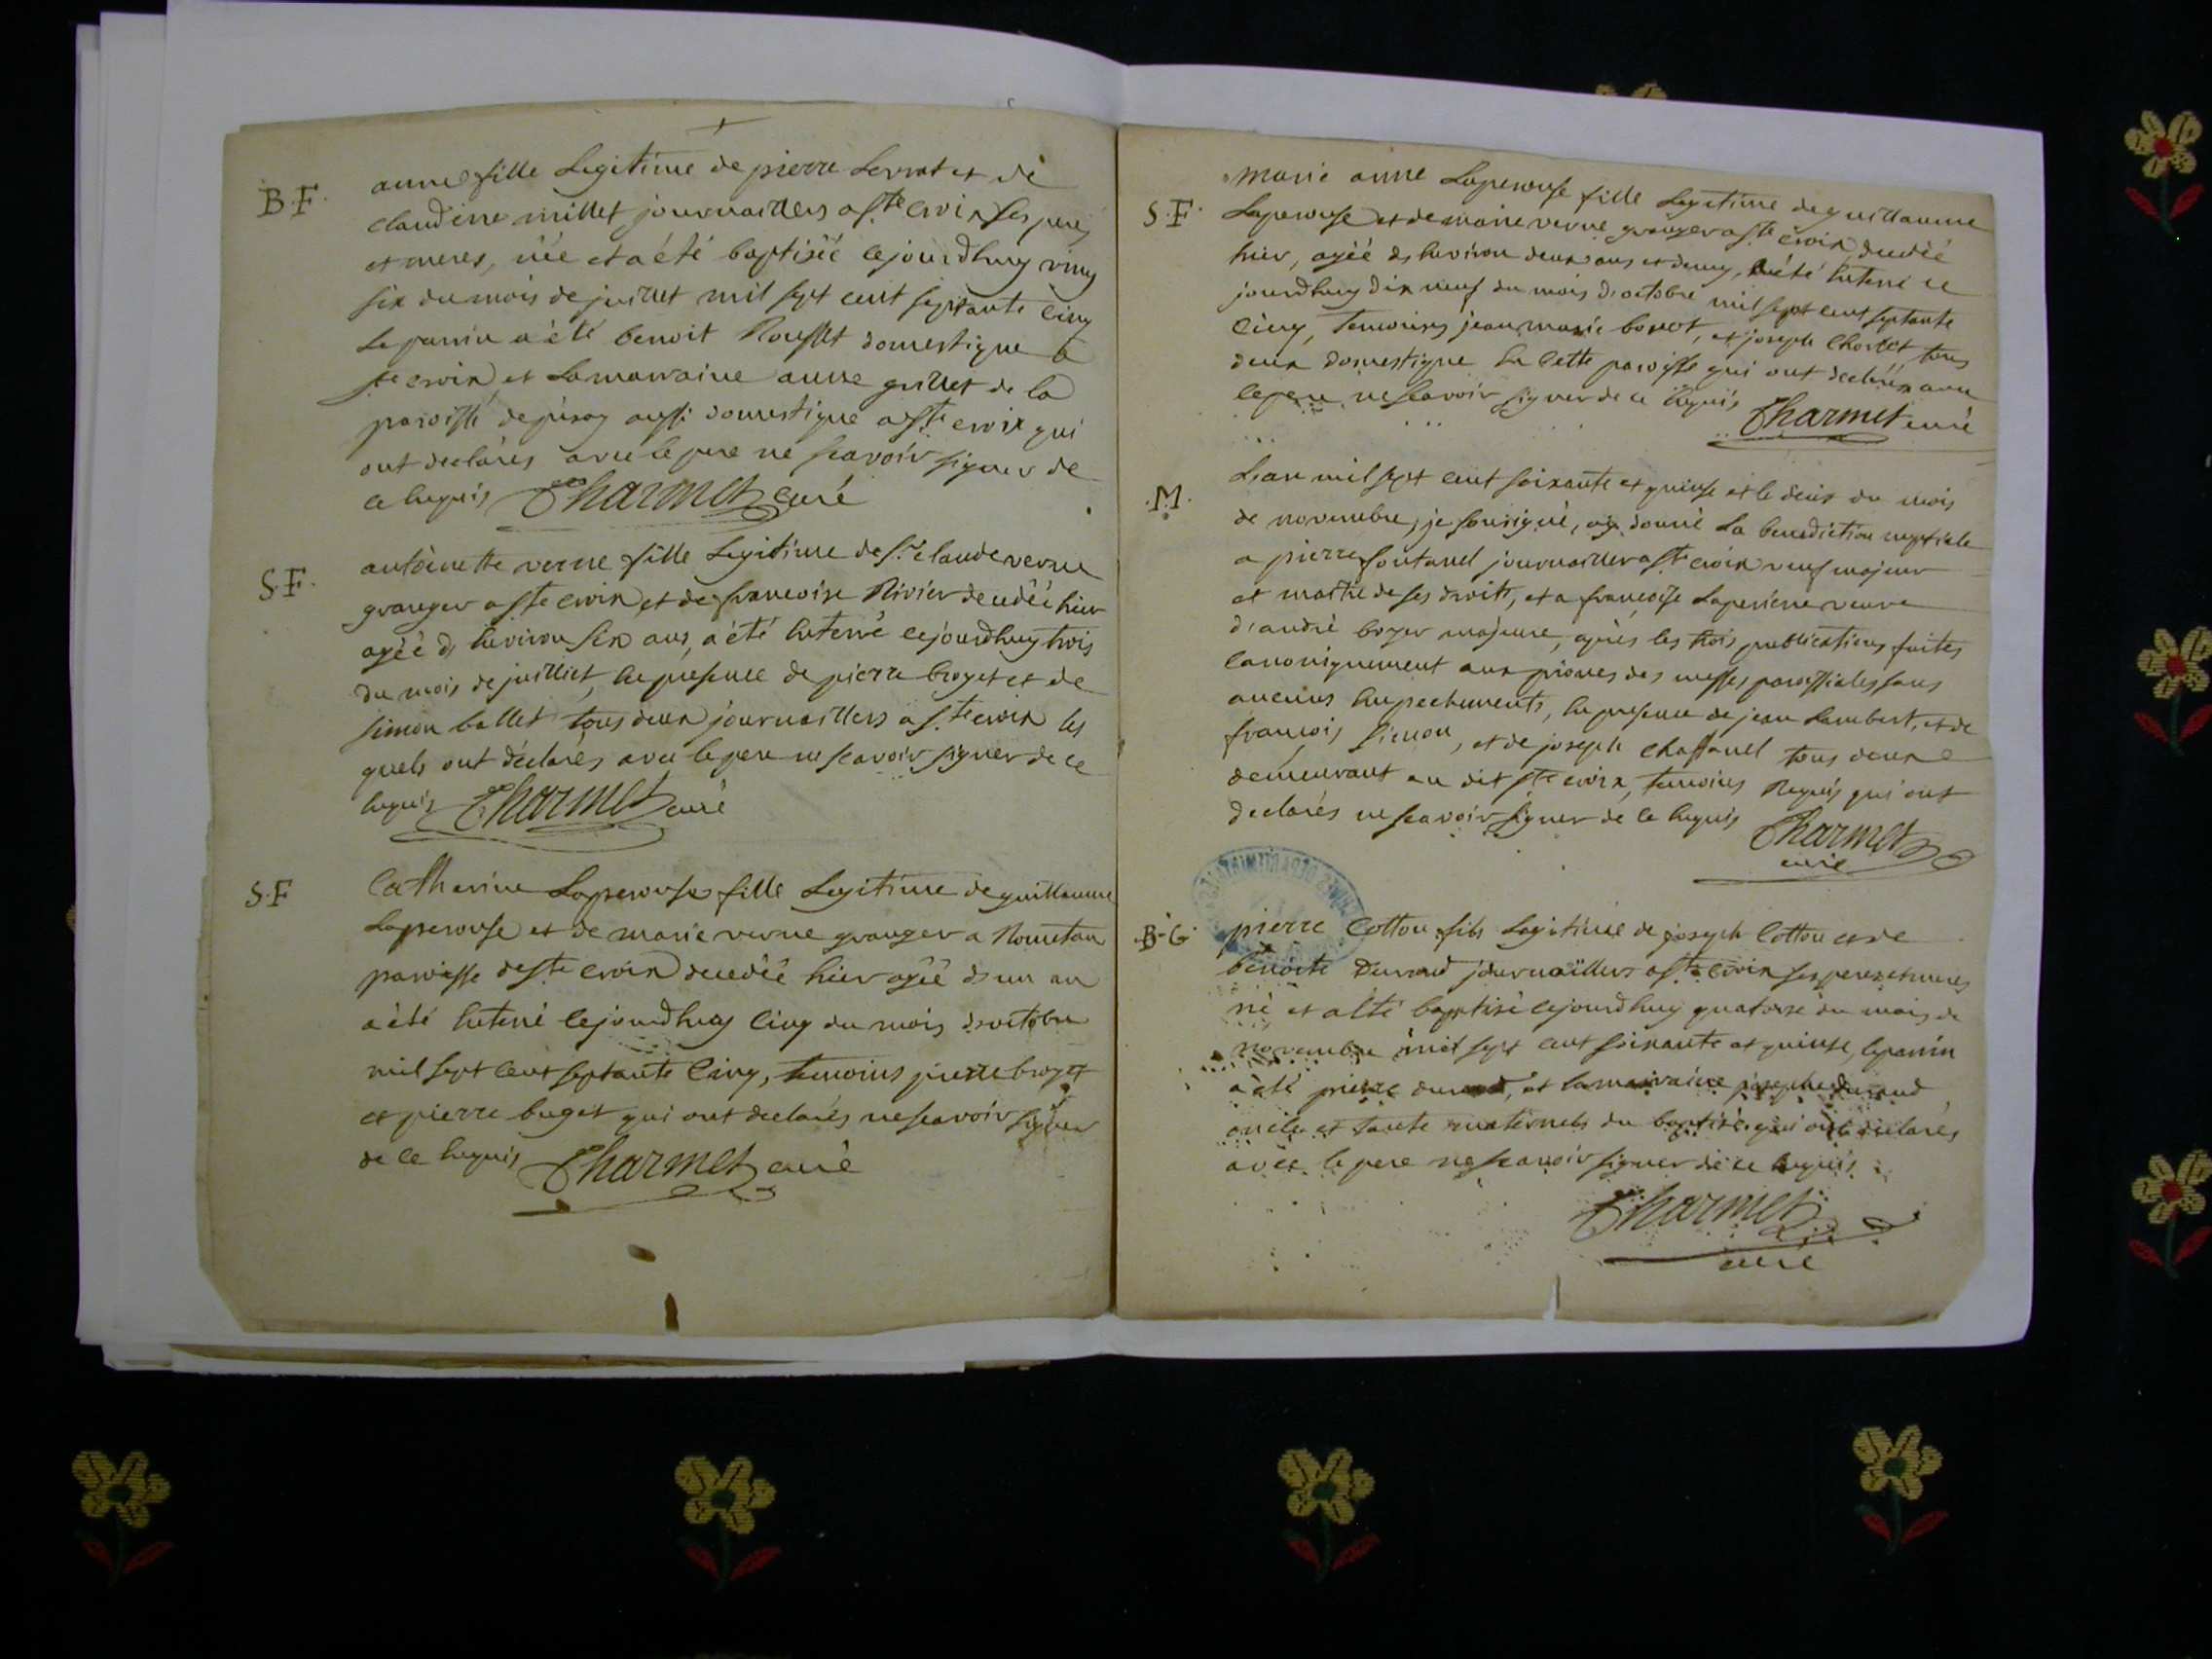 B.F.
anne fille Legitime de pierre Serrat et de
claudine millet journaillers a Ste croix ses peres
et meres, née et a été baptisée cejourdhuy vingt
six du mois de juillet mil sept cent septante cinq
le parrin a été benoit Rousset domestique a
Ste croix et La marraine anne grillet de la
paroisse de pisay aussi domestique a Ste croix qui
ont declarés avec le pere ne scavoir signer de
ce Requis Charmet curé
S.F.
antoinette verne fille Legitime de Sr claude verne
granger a Ste croix et de francoise Rivier decedée hier
agée d'environ six ans, a été enterré cejourdhuy trois
du mois de juilliet, en presence de pierre broyet et de
simon ballet tous deux journaillers a Ste croix les
quels ont déclarés avec le pere ne scavoir signer de ce
Requis Charmet curé
S.F
Catherine Laperouse fille Legitime de guillaume
Laperouse et de marie verne granger a Rometan
paroisse de Ste croix decedée hier agée d'un an
a été enterré cejourdhuy cinq du mois d'octobre
mil sept cent septante cinq, temoins pierre broyet
et pierre buget qui ont declarés ne scavoir signer
de ce Requis Charmet curé
S.F.
marie anne Laperouse fille Legitime de guillaume
Laperouse et de marie verne granger a Ste croix decedée
hier, agée d'environ deux ans et demy, a été enterré ce
jourdhuy dix neuf du mois d'octobre mil sept cent septante
cinq, temoins jean marie et joseph tous
deux domestique en cette paroisse qui ont declarés avec
le pere ne scavoir signer de ce Requis Charmet curé
.M.
L'an mil sept cent soixante et quinse et le deux du mois
de novembre, je soussigné, ay donné La benediction nuptiale
a pierre fontanel journaillier a Ste croix veuf majeur
et maitre de ses droits, et a francoise Laperierre veuve
d'andré boyer majeure, aprés les trois publications faites
canoniquement aux prones des messes paroissiales sans
aucuns empechements, en presence de jean Lambert, et de
francois simon, et de joseph chassanel tous deux
demeurant au dit Ste croix, temoins Requis qui ont
declarés ne scavoir signer de ce Requis Charmet
curé
B.G
pierre Cotton fils Legitime de joseph Cotton et de
benoite Durand journaillers a Ste croix ses peres et meres
né et a été baptisé cejourdhuy quatorse du mois de
novembre mil sept cent soixante et quinse, le parrin
a été pierre durand, et la marraine josephe durand
oncle et tante maternels du baptisé qui ont declarés
avec le pere ne scavoir signer de ce Requis
Charmet
curé